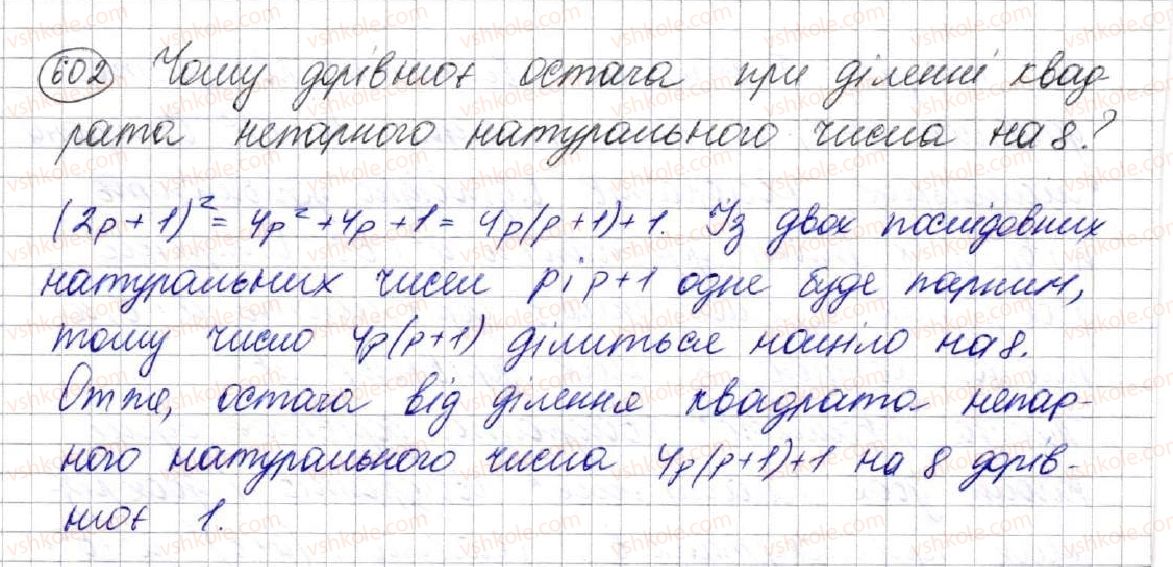 602 Чому дорівнює остача при діленні квад
рата непарного натурального числа на 8?
(2p + 1)² = 4p² + 4p + 1 = 4p(p + 1) + 1. Із двох послідовних
натуральних чисел p і p + 1 одне буде парним,
тому число 4p(p+1) ділиться націло на 8.
Отже, остача від ділення квадрата непар-
ного натурального числа 4p(p+1)+1 на 8 дорів-
нює 1.